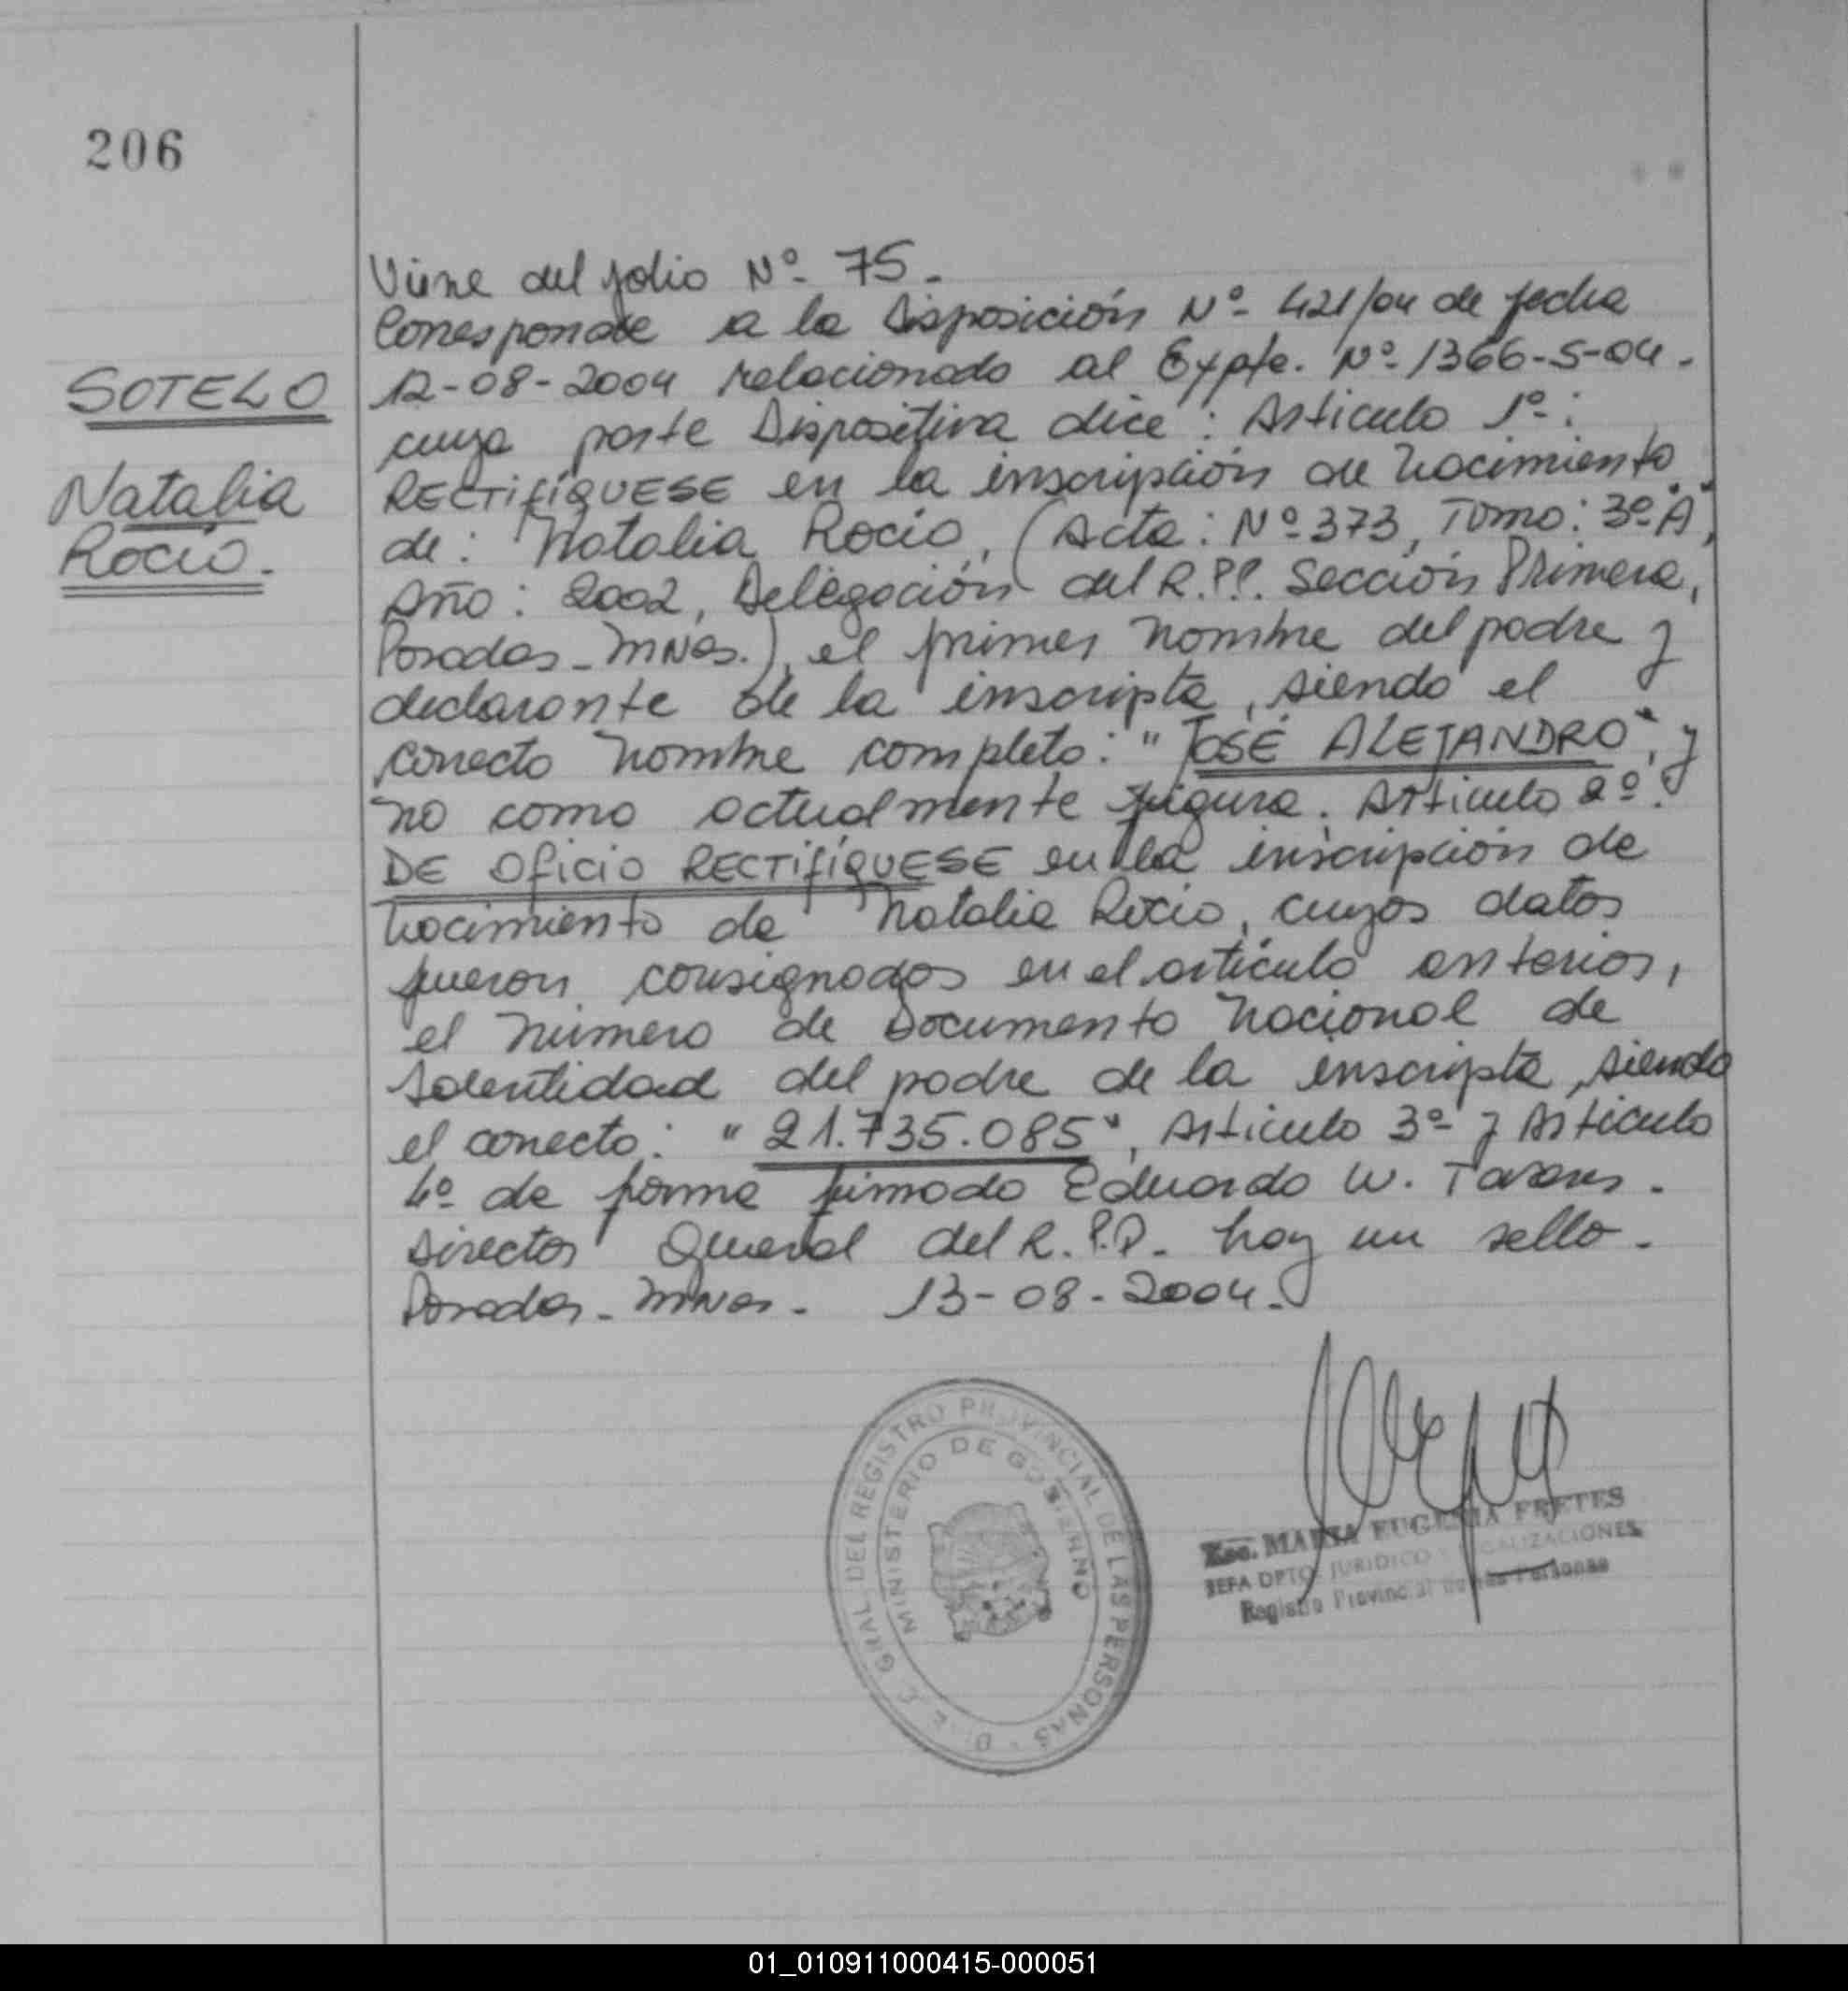 206
SOTELO
Natalia
Rocío.
Viene del folio Nº 75.
Corresponde a la Disposición Nº 421/04 de fecha
12-08-2004 relacionado al Expte. Nº 1366-S-04.
cuya parte Dispositiva dice: Artículo 1º:
RECTIFÍQUESE en la inscripción de nacimiento
de: Natalia Rocío, (Acta: Nº 373, Tomo: 3º "A",
Año: 2002, Delegación del R.P.P. Sección Primera,
Posadas-MNes.), el primer nombre del padre y
declarante de la inscripta, siendo el
correcto nombre completo: "JOSÉ ALEJANDRO", y
no como actualmente figura. Artículo 2º:
DE OFICIO RECTIFÍQUESE en la inscripción de
nacimiento de Natalia Rocío, cuyos datos
fueron consignados en el artículo anterior,
el número de Documento Nacional de
Identidad del padre de la inscripta, siendo
el correcto: "21.735.085", Artículo 3º y Artículo
4º de forma firmado Eduardo W.
Director General del R.P.P. hay un sello.
Posadas-MNes. 13-08-2004.
GRAL. DEL REGISTRO PROVINCIAL DE LAS PERSONAS
MINISTERIO DE GOBIERNO
Esc. MARIA EUGENIA FRETES
JEFA DPTO. JURIDICO Y LEGALIZACIONES
Registro Provincial de las Personas
01_010911000415-000051